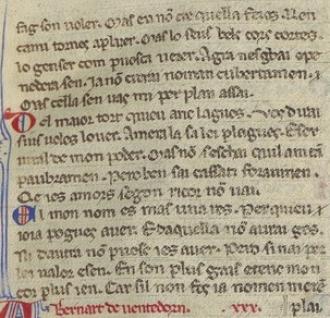 fag son uoler. Mas eu nō cre quella feꝛos. Non
camī tornes apluer. Mas lo seus bels cors cortes.
lo genser com puosca uezer. Agra nesghai ope
nedera sen. Ia nō cuiai noiran cubertamen.
Mas cella sen uai mi per plan assai.
Del maior tort quieu anc lagues. Vos diirai
sius voles louer. Amera la sa lei plagues. E ser
uiral de mon poder. Mas nō seschai quil am tā
paubramen. Pero ben sai cassatz foramen.
Qe ies amors segon ricor nō uai.
El mon non es mas una res. Per quieu
ioia pogues auer. E daquella nō aurai ges.
Ni dautra nō puose ies auer. Pero si nai per
lei ualer e sen. En son plus gais e tene mon
cor plus ien. Car sil non fos ia nomen meere
Bernart de uentedorn. xxx. plai